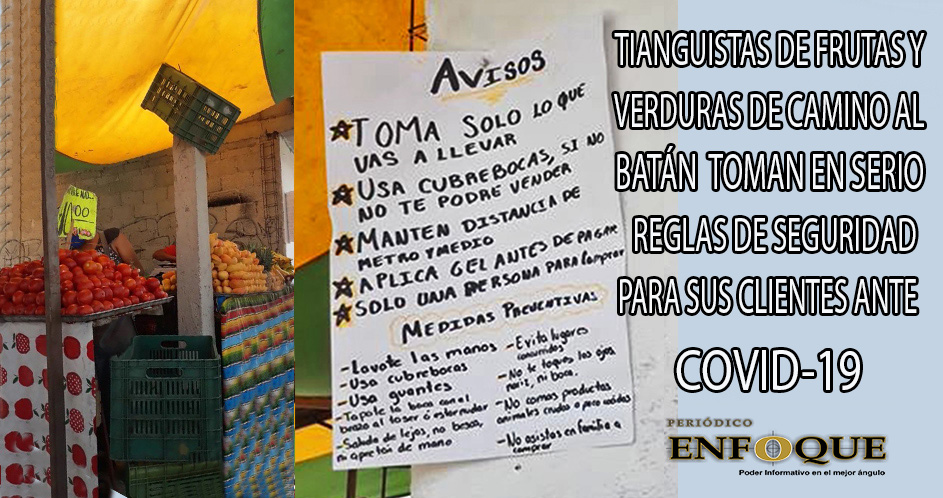 00
AVISOS
TOMA SOLO LO QUE
VAS A LLEVAR
USA CUBREBOCAS, SI NO
NO TE PODRE VENDER
MANTEN DISTANCIA DE
METRO Y MEDIO
APLICA GEL ANTES DE PAGAR
SOLO UNA PERSONA PARA COMPRAR
MEDIDAS PREVENTIVAS
- Lavate las manos
- Usa cubrebocas
- Usa guantes
- Tapate la boca con el
brazo al toser ó estornudar
- Saluda de lejos, no beso,
ni apreton de mano
- Evita lugares
concurridos
- No te toques los ojos
nariz, ni boca.
- No comas productos
animales crudos o poco cocidos
- No asistas en familia a
comprar
TIANGUISTAS DE FRUTAS Y
VERDURAS DE CAMINO AL
BATÁN TOMAN EN SERIO
REGLAS DE SEGURIDAD
PARA SUS CLIENTES ANTE
COVID-19
PERIÓDICO
ENFOQUE
Poder Informativo en el mejor ángulo